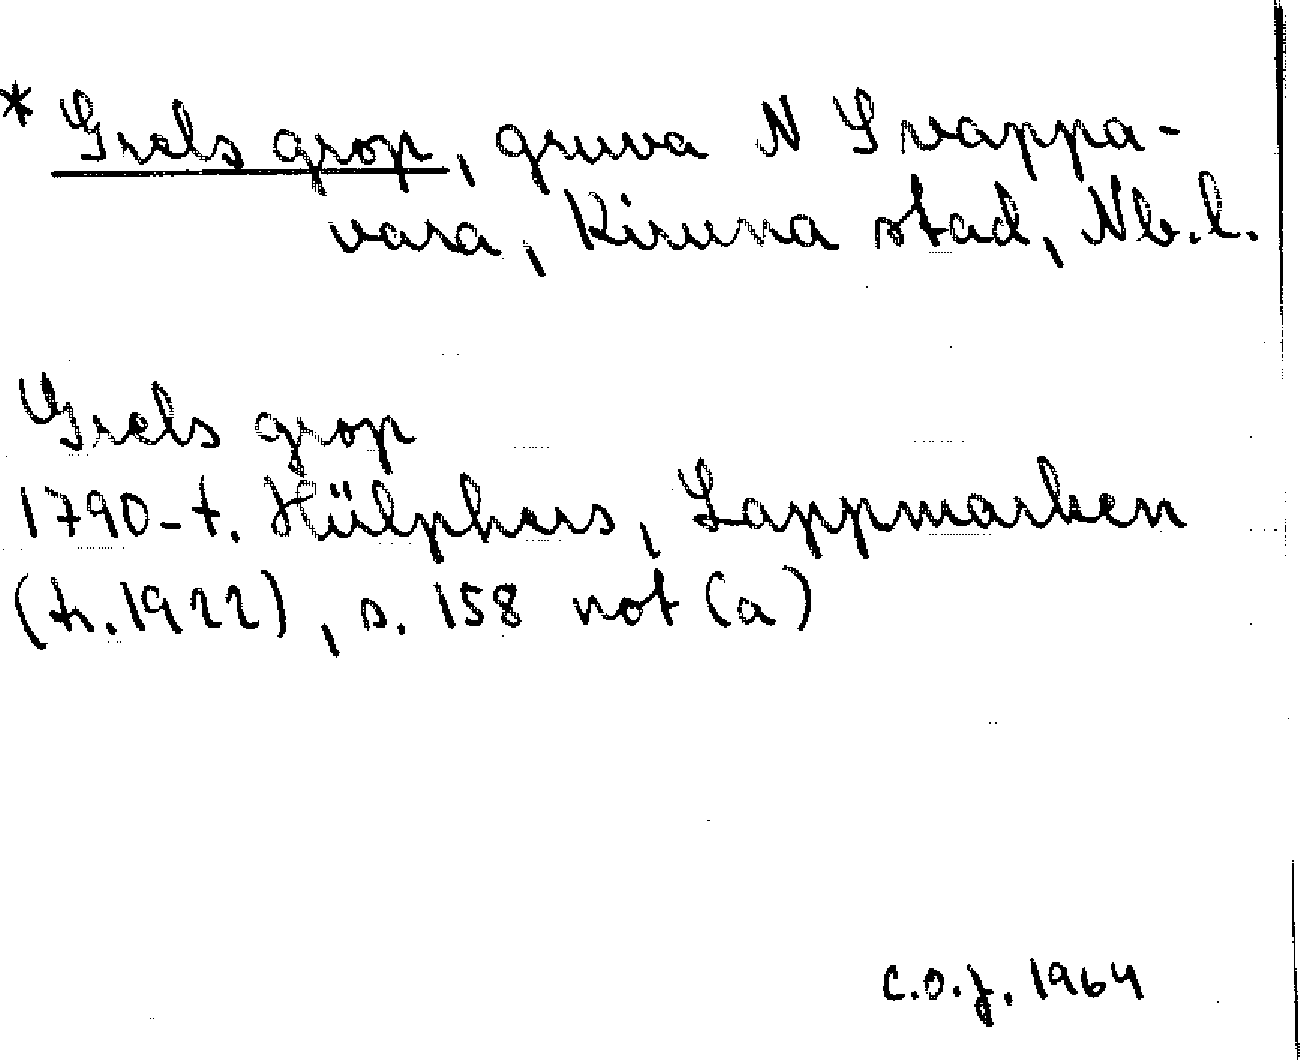 * Grels grop, gruva N Svappa-
vara, Kiruna stad, Nb.l.
Grels grop
1790-t. Hülphers, Lappmarken
(tr. 1922), s. 158 not (a)
C.O.J. 1964